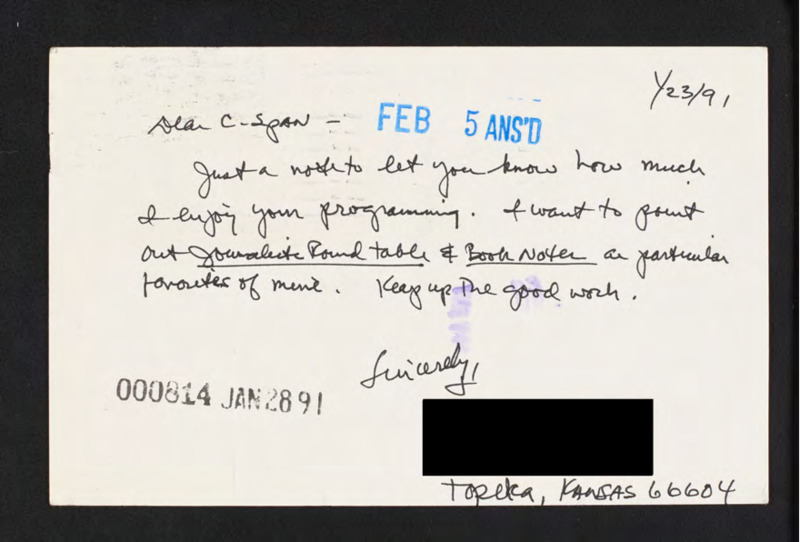 1/23/91
Dear C-Span -
FEB 5 ANS'D
Just a note to let you know how much
I enjoy your programming. I want to point
out Journalists Round table & Book Notes as particular
favorites of mine. Keep up the good work.
Sincerely,
000814 JAN 28 91
Topeka, KANSAS 66604